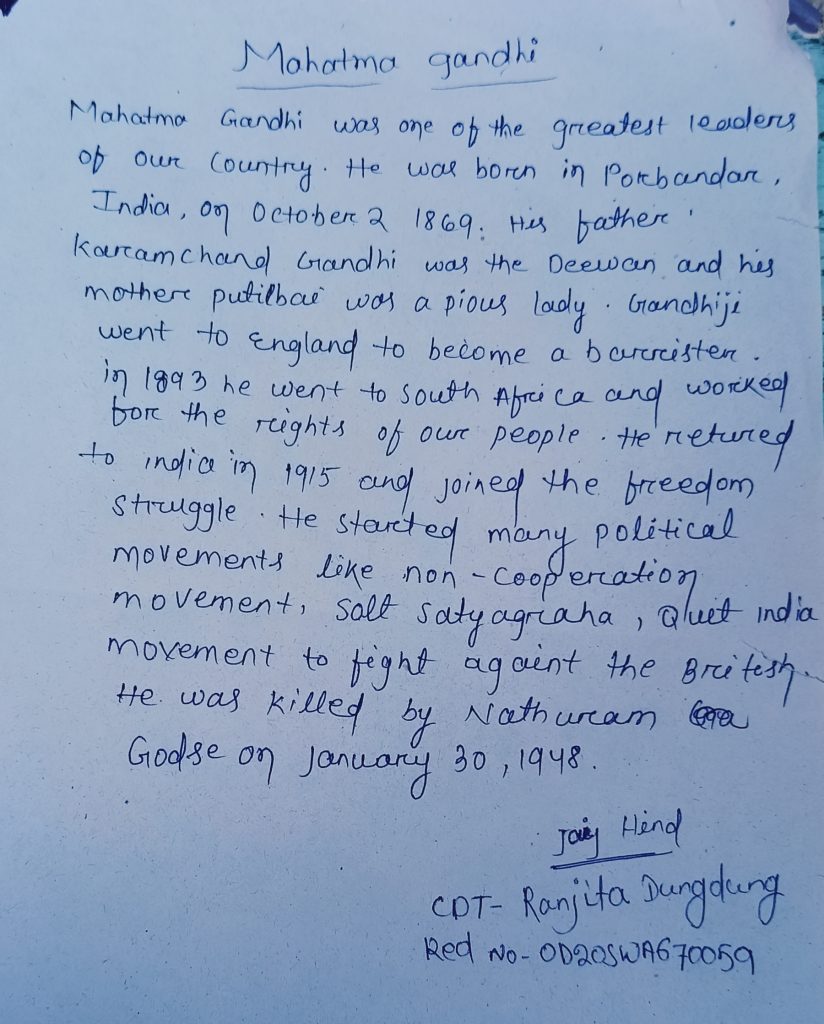 Mahatma gandhi
Mahatma Gandhi was one of the greatest leaders
of our Country. He was born in Porbandar,
India, on October 2 1869. His father
Karamchand Gandhi was the Deewan and his
mother putilbai was a pious lady. Gandhiji
went to England to become a barrister.
in 1893 he went to South Africa and worked
for the rights of our people. He retured
to india in 1915 and joined the freedom
struggle. He started many political
movements like non-cooperation
movement, Salt satyagraha, Quit india
movement to fight againt the British.
He was killed by Nathuram
Godse on January 30, 1948.
Jaij Hind
CDT- Ranjita Dungdung
Red No- OD20SWA670059